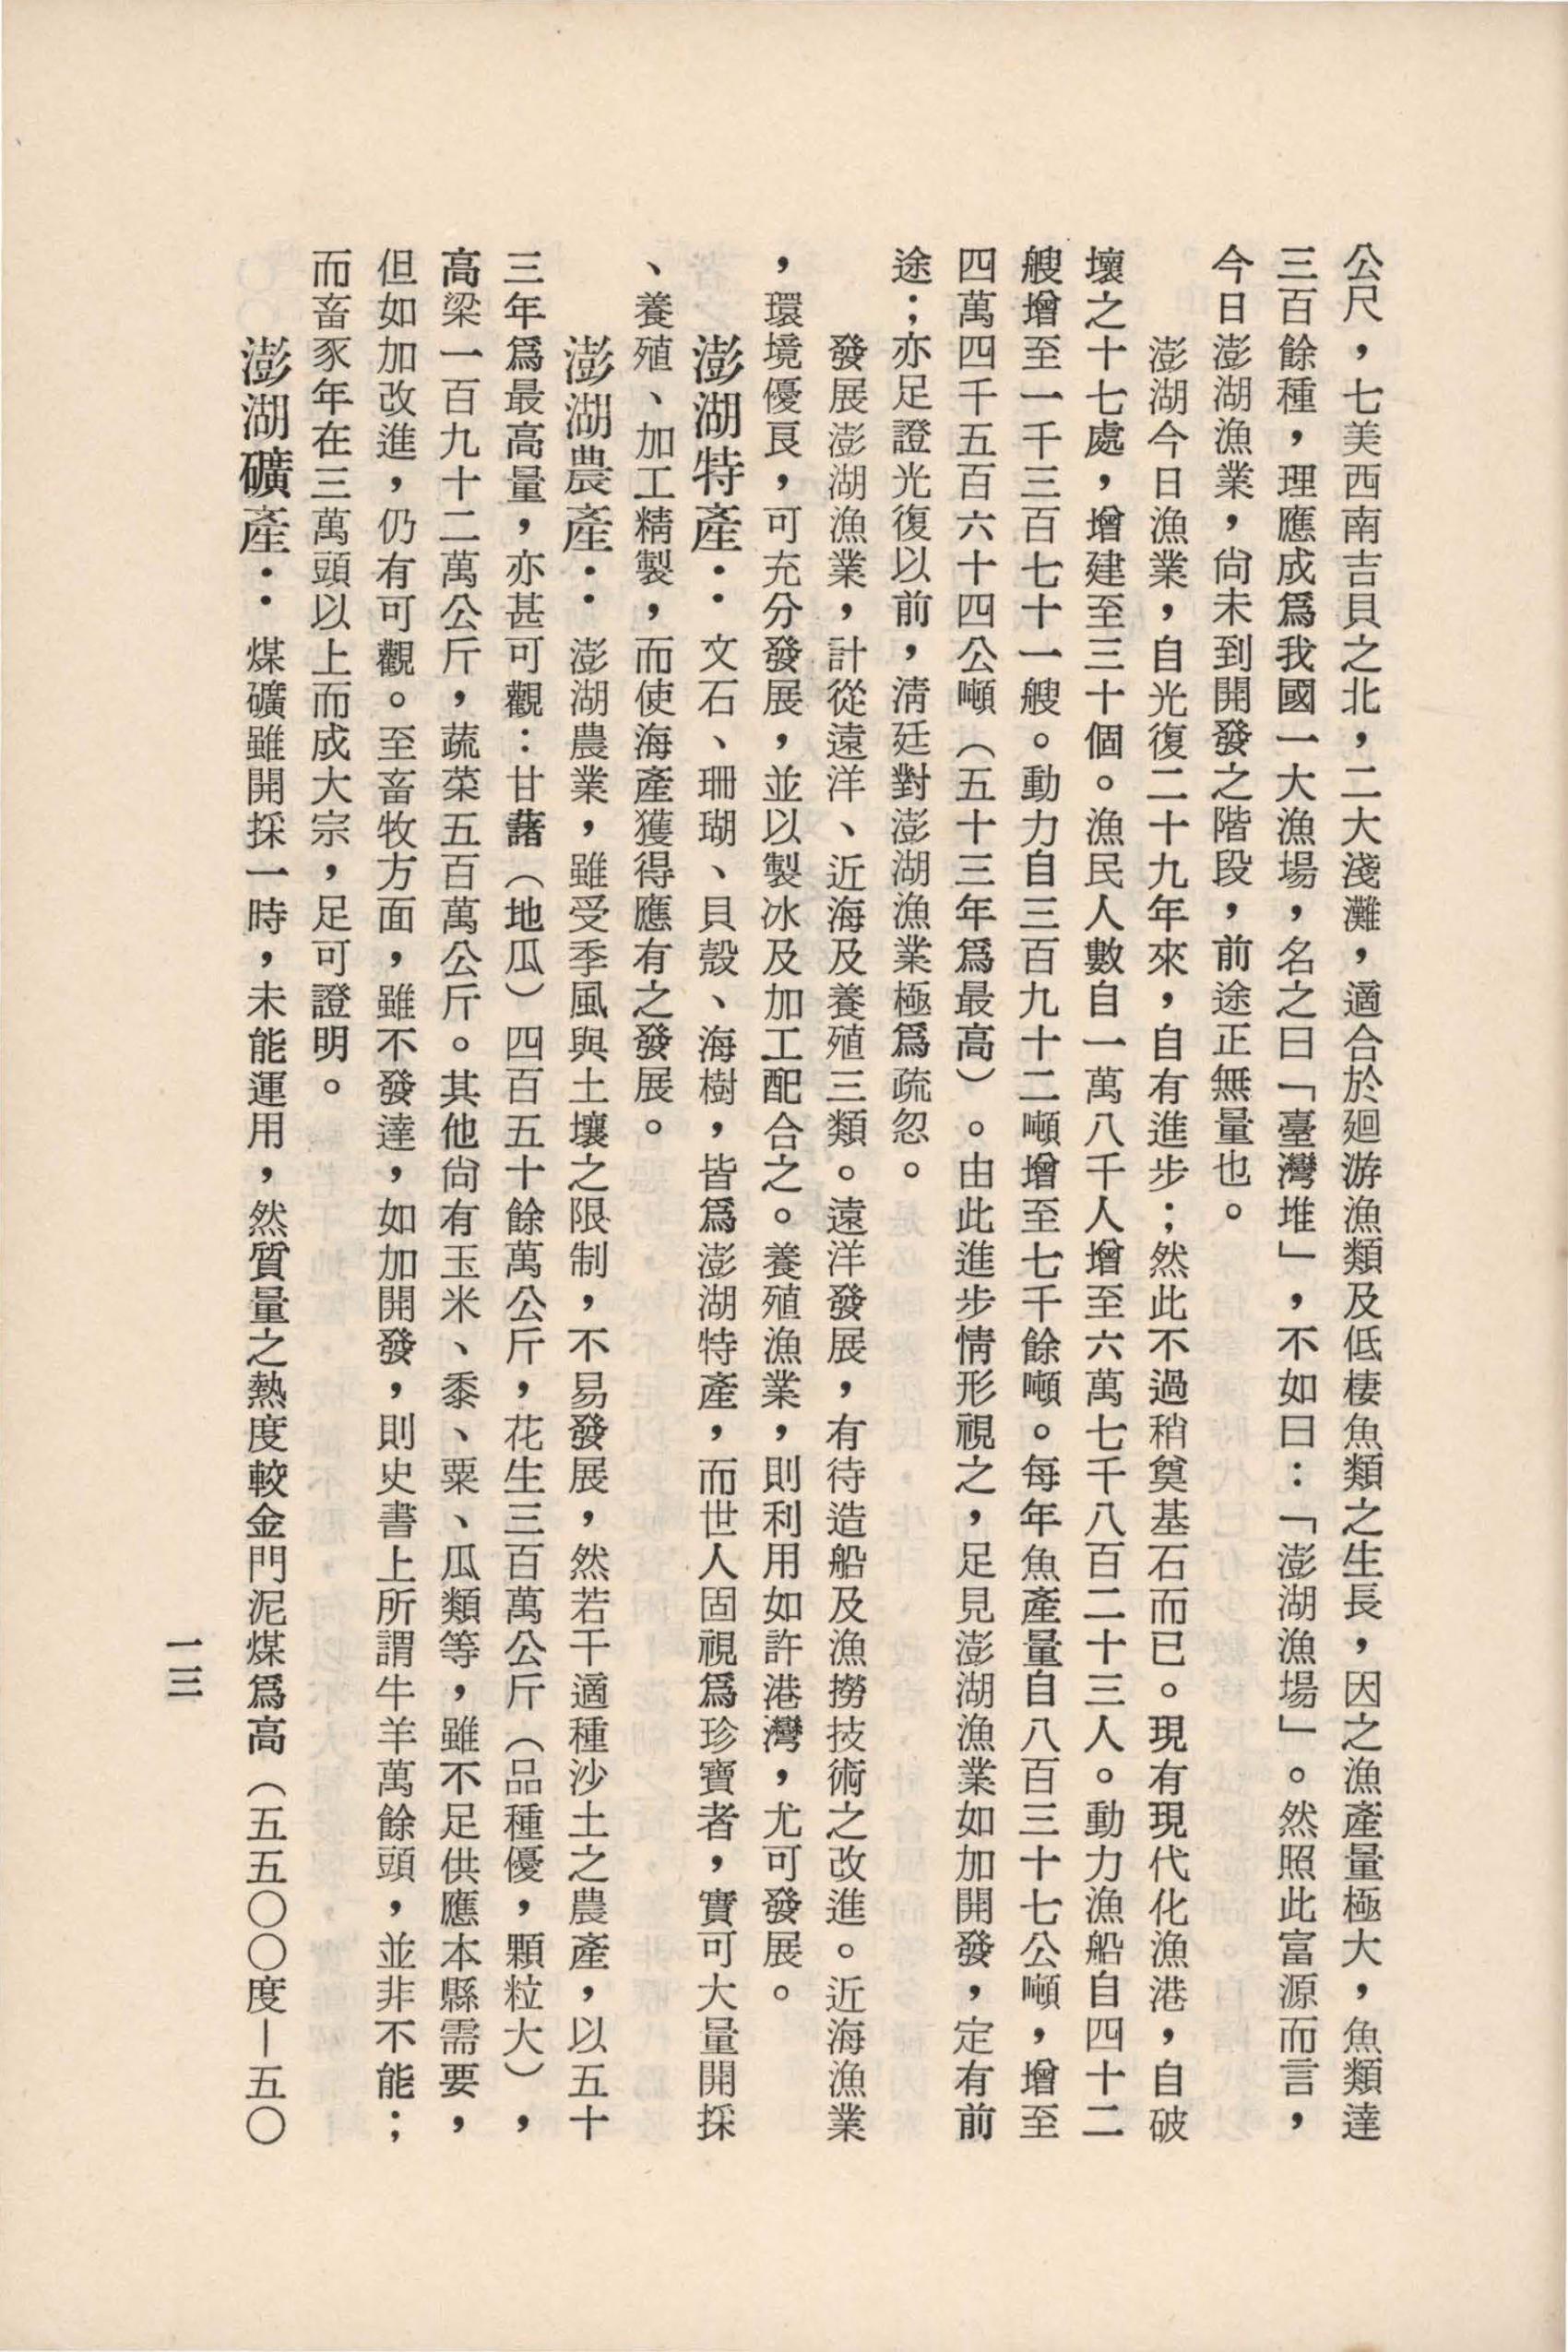 公尺，七美西南吉貝之北，二大淺灘，適合於廻游漁類及低棲魚類之生長，因之漁產量極大，魚類達
三百餘種，理應成爲我國一大漁場，名之曰「臺灣堆」，不如曰：「澎湖漁場」。然照此富源而言，
今日澎湖漁業，尙未到開發之階段，前途正無量也。
澎湖今日漁業，自光復二十九年來，自有進步；然此不過稍奠基石而已。現有現代化漁港，自破
壞之十七處，增建至三十個。漁民人數自一萬八千人增至六萬七千八百二十三人。動力漁船自四十二
艘增至一千三百七十一艘。動力自三百九十二噸增至七千餘噸。每年魚產量自八百三十七公噸，增至
四萬四千五百六十四公噸（五十三年爲最高）。由此進步情形視之，足見澎湖漁業如加開發，定有前
途；亦足證光復以前，淸廷對澎湖漁業極爲疏忽。
發展澎湖漁業，計從遠洋、近海及養殖三類。遠洋發展，有待造船及漁撈技術之改進。近海漁業
，環境優良，可充分發展，並以製冰及加工配合之。養殖漁業，則利用如許港灣，尤可發展。
澎湖特產：文石、珊瑚、貝殼、海樹，皆爲澎湖特產，而世人固視爲珍寶者，實可大量開採
、養殖、加工精製，而使海產獲得應有之發展。
澎湖農產：澎湖農業，雖受季風與土壤之限制，不易發展，然若干適種沙土之農產，以五十
三年爲最高量，亦甚可觀：甘藷（地瓜）四百五十餘萬公斤，花生三百萬公斤（品種優，顆粒大），
高梁一百九十二萬公斤，蔬菜五百萬公斤。其他尙有玉米、黍、粟、瓜類等，雖不足供應本縣需要，
但如加改進，仍有可觀。至畜牧方面，雖不發達，如加開發，則史書上所謂牛羊萬餘頭，並非不能；
而畜豕年在三萬頭以上而成大宗，足可證明。
澎湖礦產：煤礦雖開採一時，未能運用，然質量之熱度較金門泥煤爲高（五五〇〇度—五〇
一三